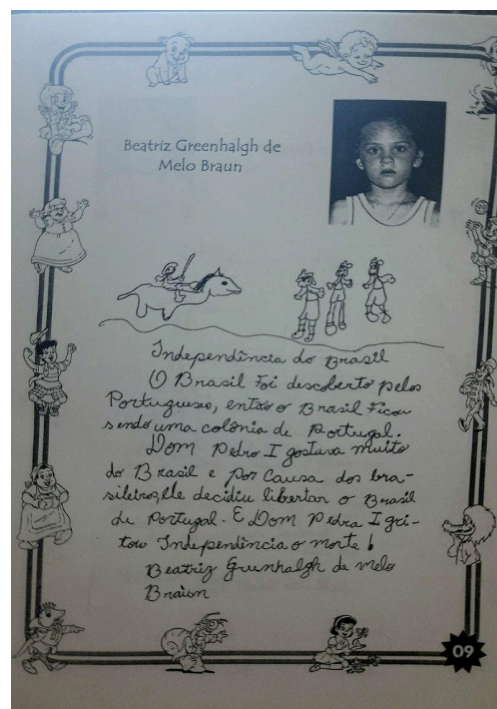 Beatriz Greenhalgh de
Melo Braun
Independência do Brasil
O Brasil foi descoberto pelos
Portugueses, então o Brasil ficou
sendo uma colônia de Portugal.
Dom Pedro I gostava muito
do Brasil e por causa dos bra-
sileiros, ele decidiu libertar o Brasil
de Portugal. E Dom Pedra I gri-
tou Independência o morte!
Beatriz Greenhalgh de melo
Braun
09